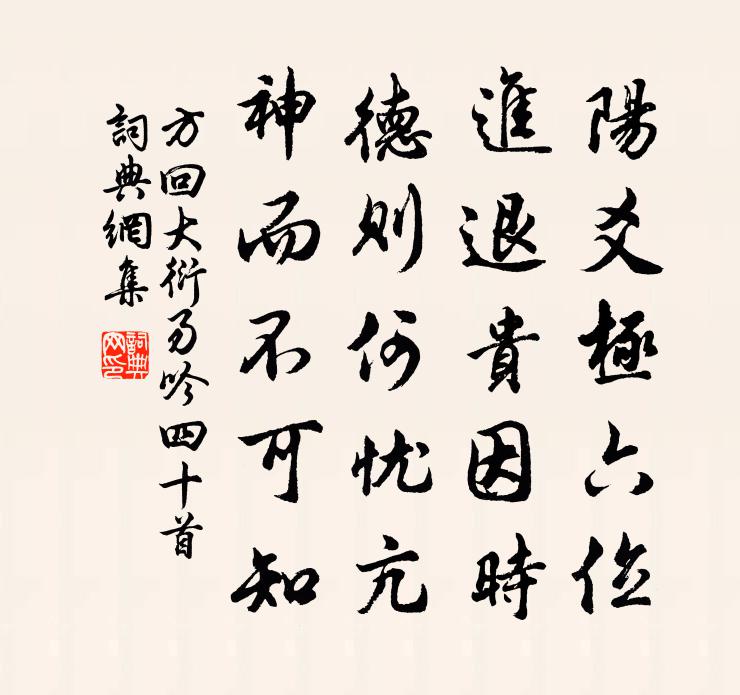 陽爻極六位
進退貴因時
德則何忧亢
神而不可知
方回大衍易吟四十首
詞典網集
詞典网印